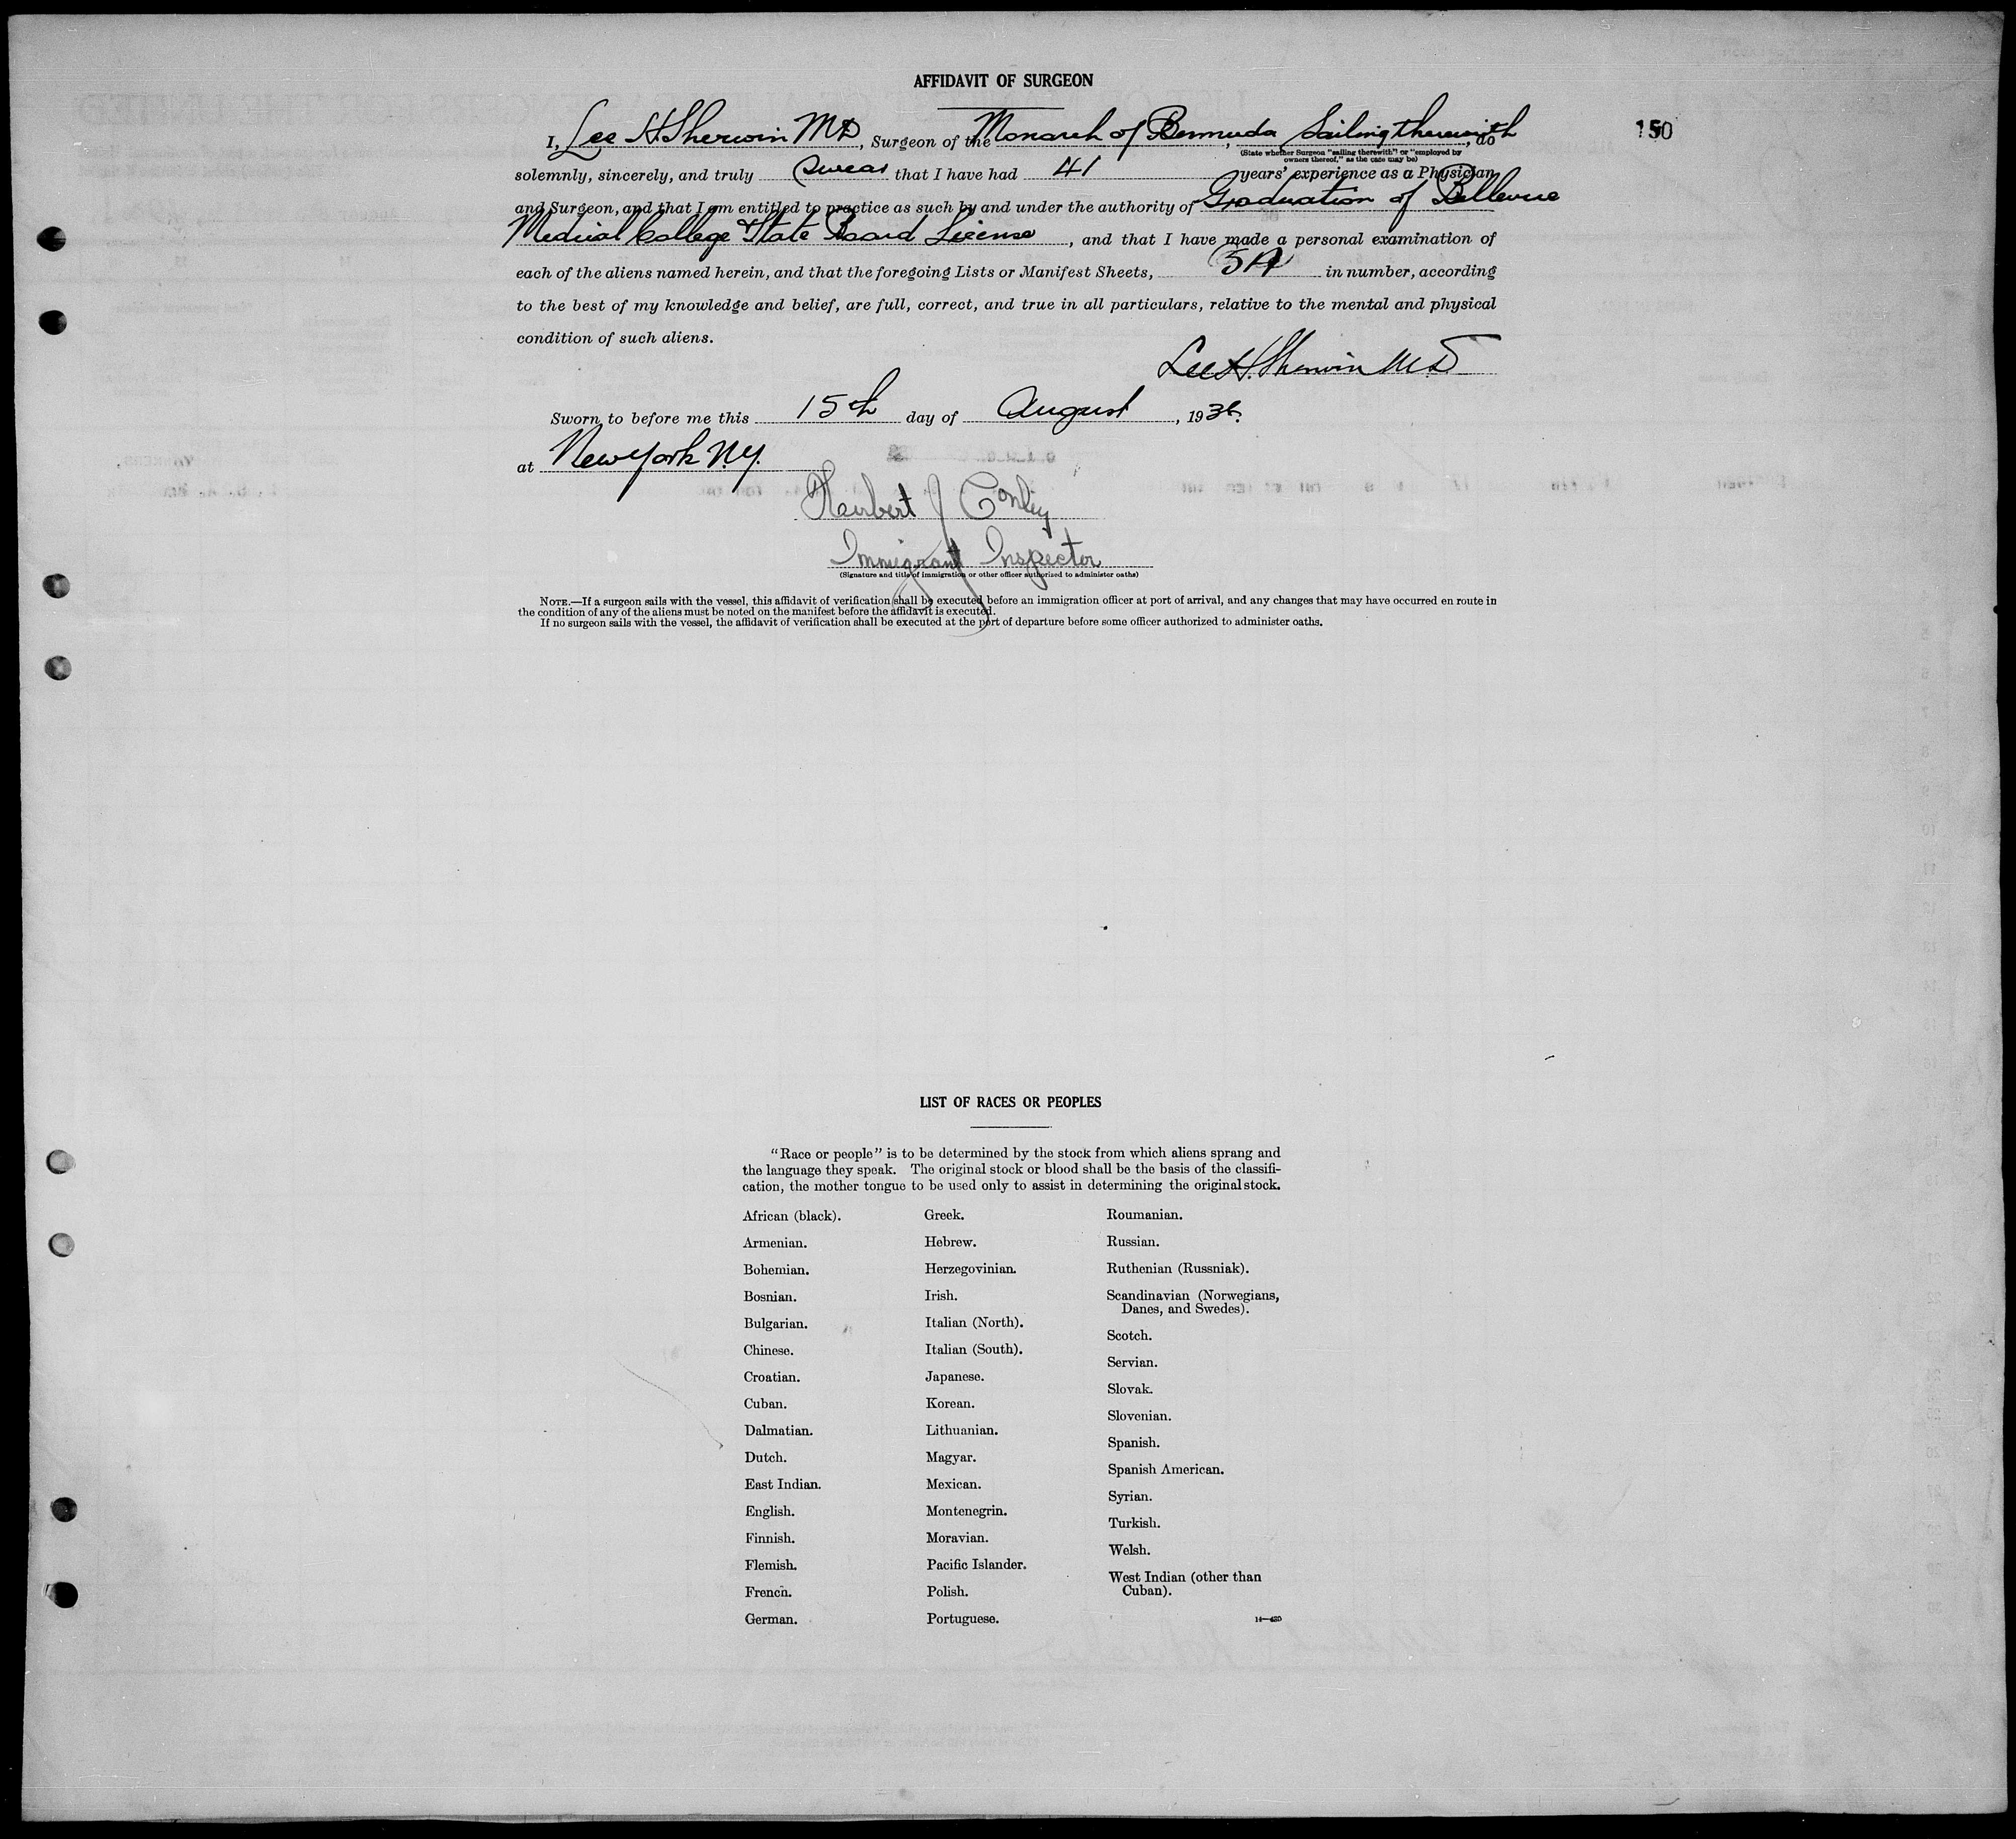 AFFIDAVIT OF SURGEON
150
I, Lee H Sherwin MD, Surgeon of the Monarch of Bermuda, Sailing therewith, do
(State whether Surgeon "sailing therewith" or "employed by
owners thereof," as the case may be)
solemnly, sincerely, and truly swear that I have had 41 years' experience as a Physician
and Surgeon, and that I am entitled to practice as such by and under the authority of Graduation of Bellevue
Medical College & State Board License, and that I have made a personal examination of
each of the aliens named herein, and that the foregoing Lists or Manifest Sheets, 5A in number, according
to the best of my knowledge and belief, are full, correct, and true in all particulars, relative to the mental and physical
condition of such aliens.
Lee H. Sherwin M.D
Sworn to before me this 15th day of August, 1936.
at New York N.Y.
Herbert J Conley
Immigrant Inspector
(Signature and title of immigration or other officer authorized to administer oaths)
NOTE.—If a surgeon sails with the vessel, this affidavit of verification shall be executed before an immigration officer at port of arrival, and any changes that may have occurred en route in
the condition of any of the aliens must be noted on the manifest before the affidavit is executed.
If no surgeon sails with the vessel, the affidavit of verification shall be executed at the port of departure before some officer authorized to administer oaths.
LIST OF RACES OR PEOPLES
"Race or people" is to be determined by the stock from which aliens sprang and
the language they speak. The original stock or blood shall be the basis of the classifi-
cation, the mother tongue to be used only to assist in determining the original stock.
African (black).
Armenian.
Bohemian.
Bosnian.
Bulgarian.
Chinese.
Croatian.
Cuban.
Dalmatian.
Dutch.
East Indian.
English.
Finnish.
Flemish.
French.
German.
Greek.
Hebrew.
Herzegovinian.
Irish.
Italian (North).
Italian (South).
Japanese.
Korean.
Lithuanian.
Magyar.
Mexican.
Montenegrin.
Moravian.
Pacific Islander.
Polish.
Portuguese.
Roumanian.
Russian.
Ruthenian (Russniak).
Scandinavian (Norwegians,
Danes, and Swedes).
Scotch.
Servian.
Slovak.
Slovenian.
Spanish.
Spanish American.
Syrian.
Turkish.
Welsh.
West Indian (other than
Cuban).